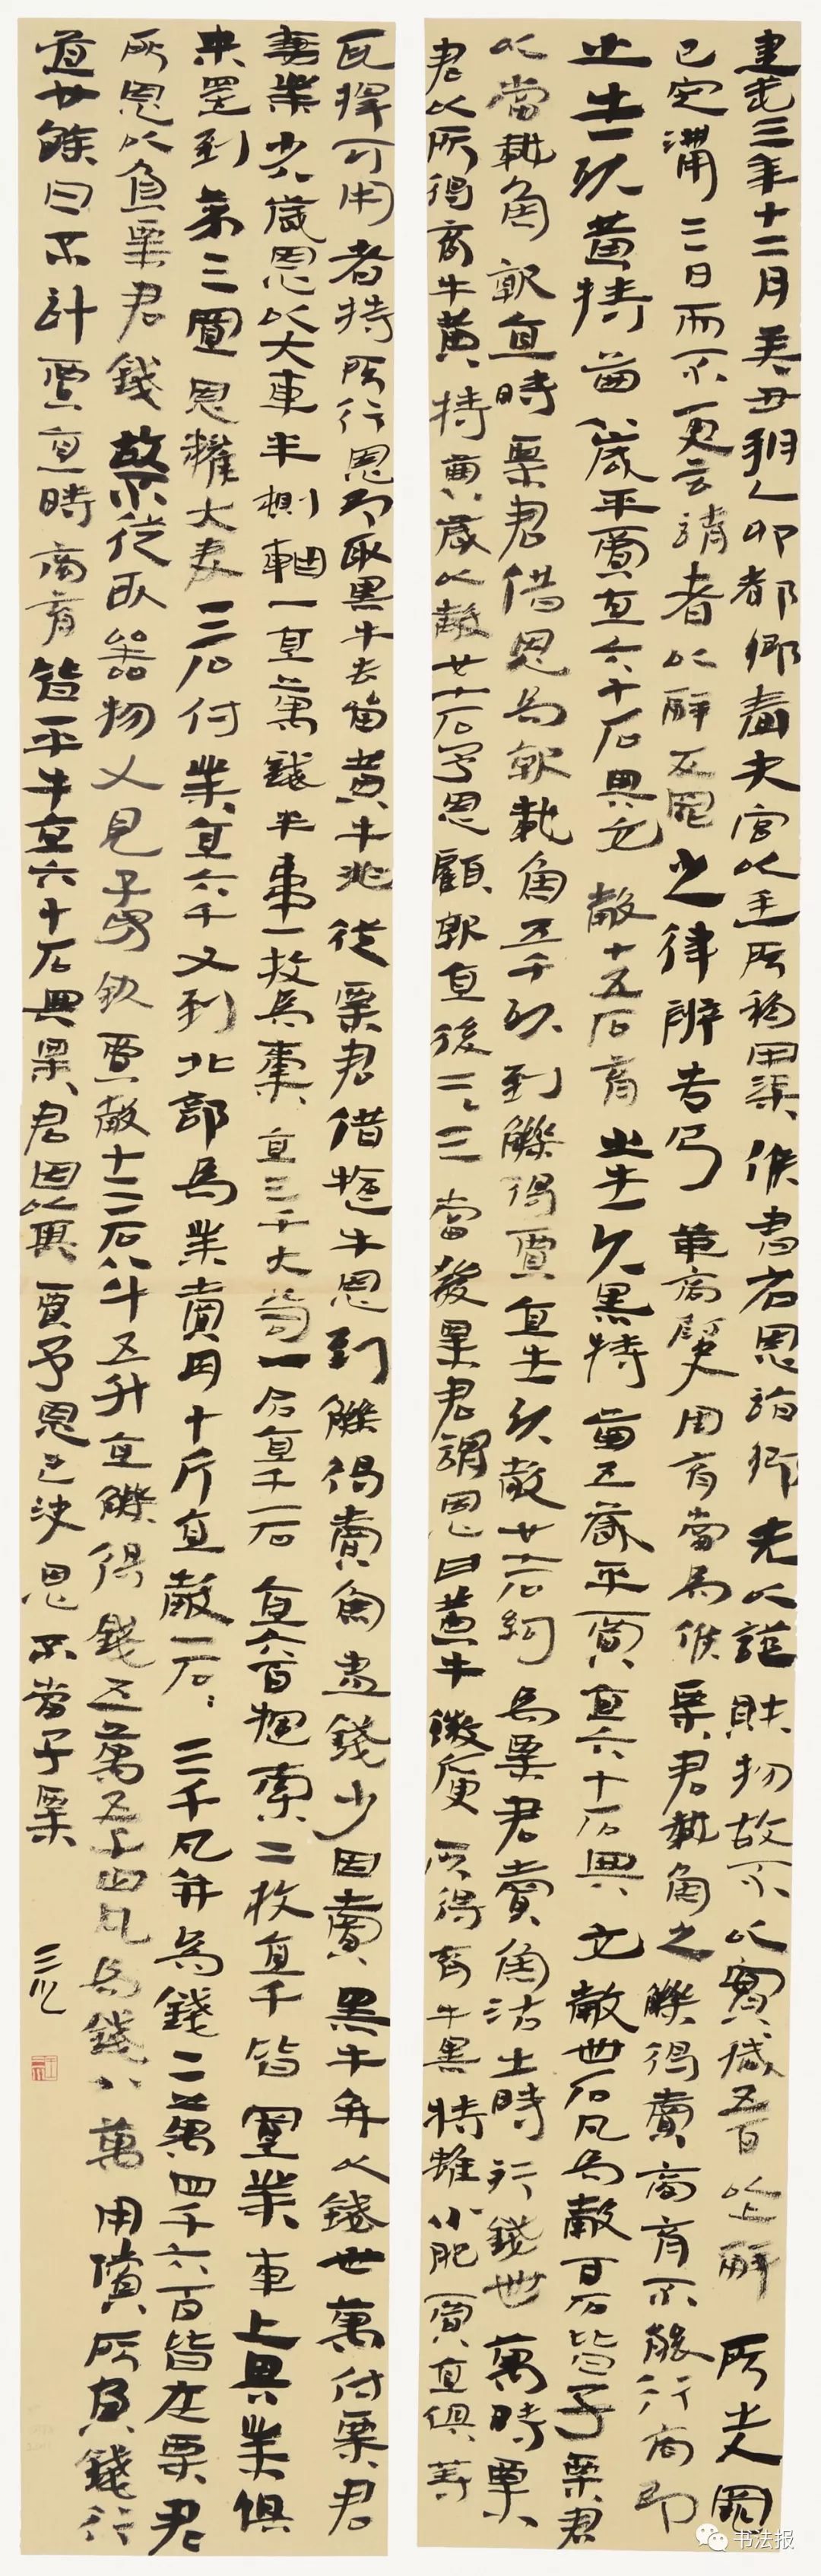 建武三年十二月癸丑朔乙卯都鄉嗇夫宮以廷所移甲渠候書召恩詣鄉先以證財物故不以實臧五百以上辭所出入罪
已定滿三日而不更言請者以辭反罪之律辨告乃爰書育當為候粟君載魚之觻得賣商育不能行商即
出牛一頭黃特齒八歲平賈直六十石與它穀十五石育出牛一頭黑特齒五歲平賈直六十石與它穀卌石凡為穀百石皆予粟君
以當載魚就直時粟君借恩為就載魚五千頭到觻得賈直牛一頭穀廿七石約為粟君賣魚沽出時行錢卌萬時粟
君以所得商牛黃特齒八歲以穀廿七石予恩顧就直後二三當發粟君謂恩曰黃牛微庾所得育牛黑特雖小肥賈直俱等
耳擇可用者持所行恩即取黑牛去留黃牛非從粟君借牛恩到觻得賣魚盡錢少因賣黑牛并以錢卅萬付粟君
妻業少八歲恩以大車半側軸一直萬錢羊韋一枚為橐直三千大笥一合直千一石直六百索二枚直千皆置業車上與業俱
來還到第三置恩糴大麥二石付業直六千又到北部為業賣肉十斤直穀一石石三千凡并為錢二萬四千六百皆在粟君
所恩以負粟君錢故不從取器物又恩子男欽賈穀十三石八斗五升直觻得錢五萬五千四凡為錢八萬用償所負錢行
道廿餘日不計賈直時商育皆平牛直六十石與粟君因以其賈予恩已決恩不當予粟
三川
书法报